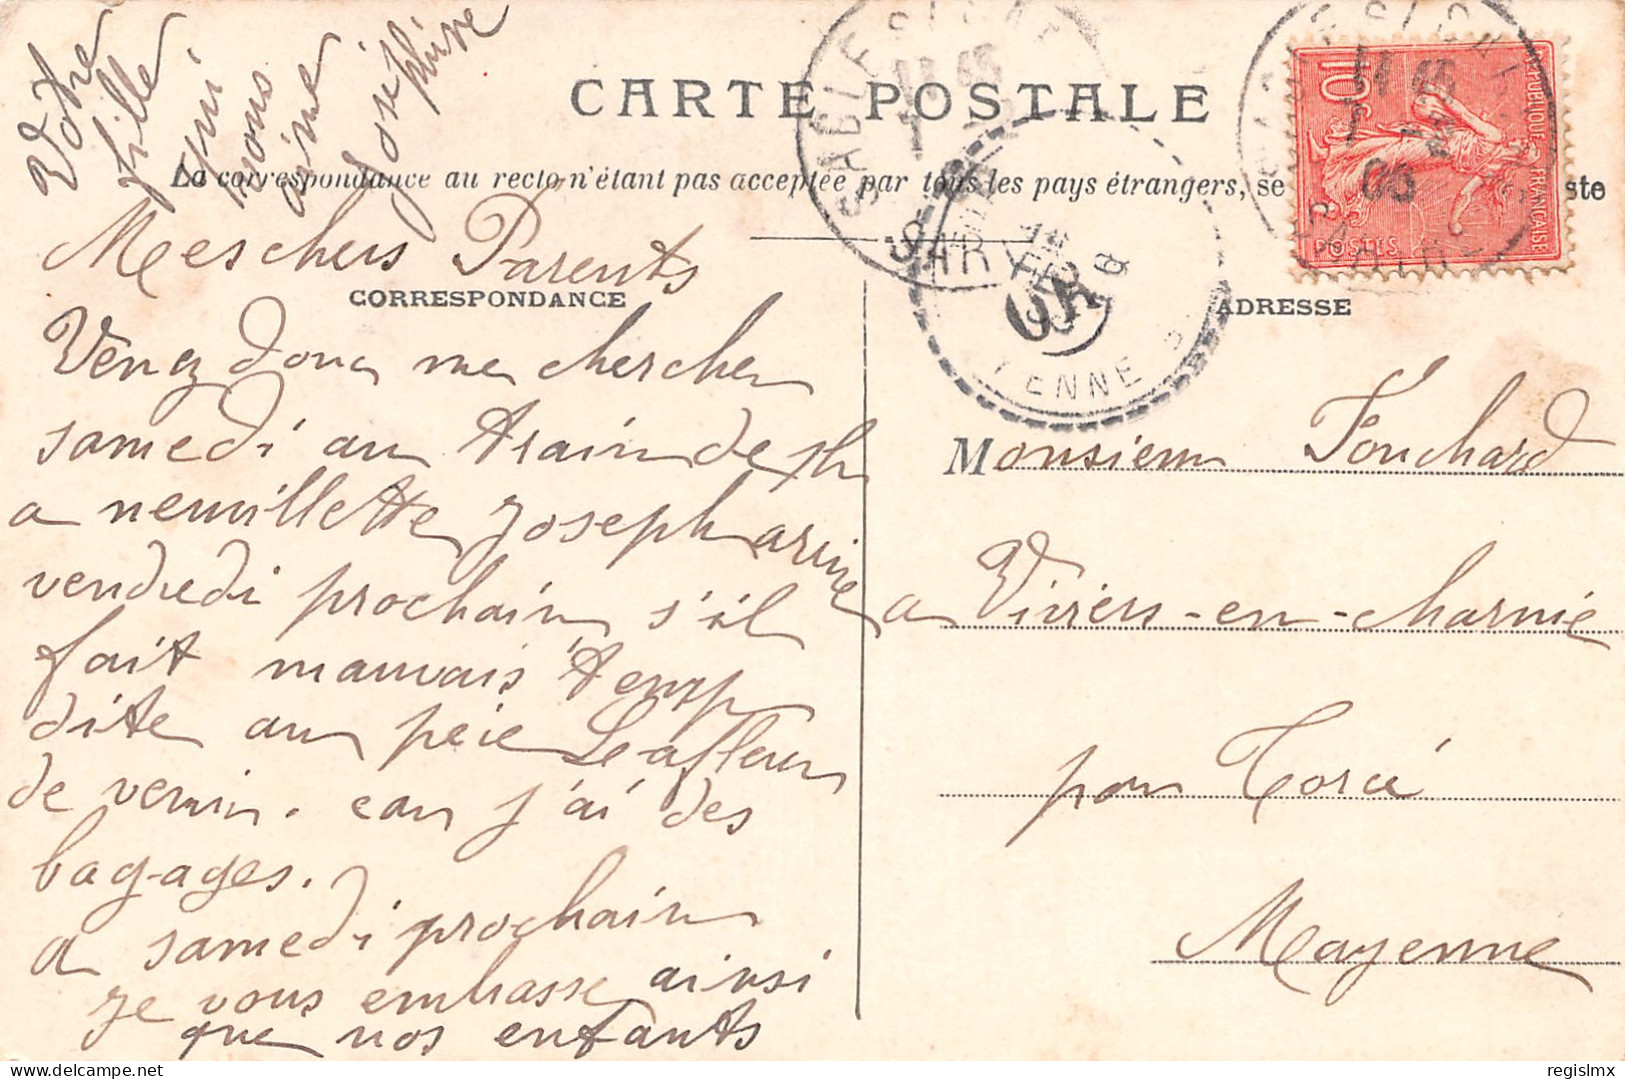 Votre
fille
qui
vous
aime
Josephine
CARTE POSTALE
La correspondance au recto n'étant pas acceptée par tous les pays étrangers, se
ste
Mes chers Parents
CORRESPONDANCE
Venez donc me chercher
samedi au train de
a neuvillette Joseph arrive
vendredi prochain s'il
fait mauvais temp
dite au peie Lafleur
de venir. car j'ai des
bagages.
a samedi prochain
Je vous embrasse ainsi
que nos enfants
ADRESSE
Monsieur Fouchard
a Viviers-en-charnie
par Torcé
Mayenne
REPUBLIQUE FRANÇAISE
10c
POSTES
SABLE S
SARTHE
11 45
7
05
OR
YENNE
regislmx